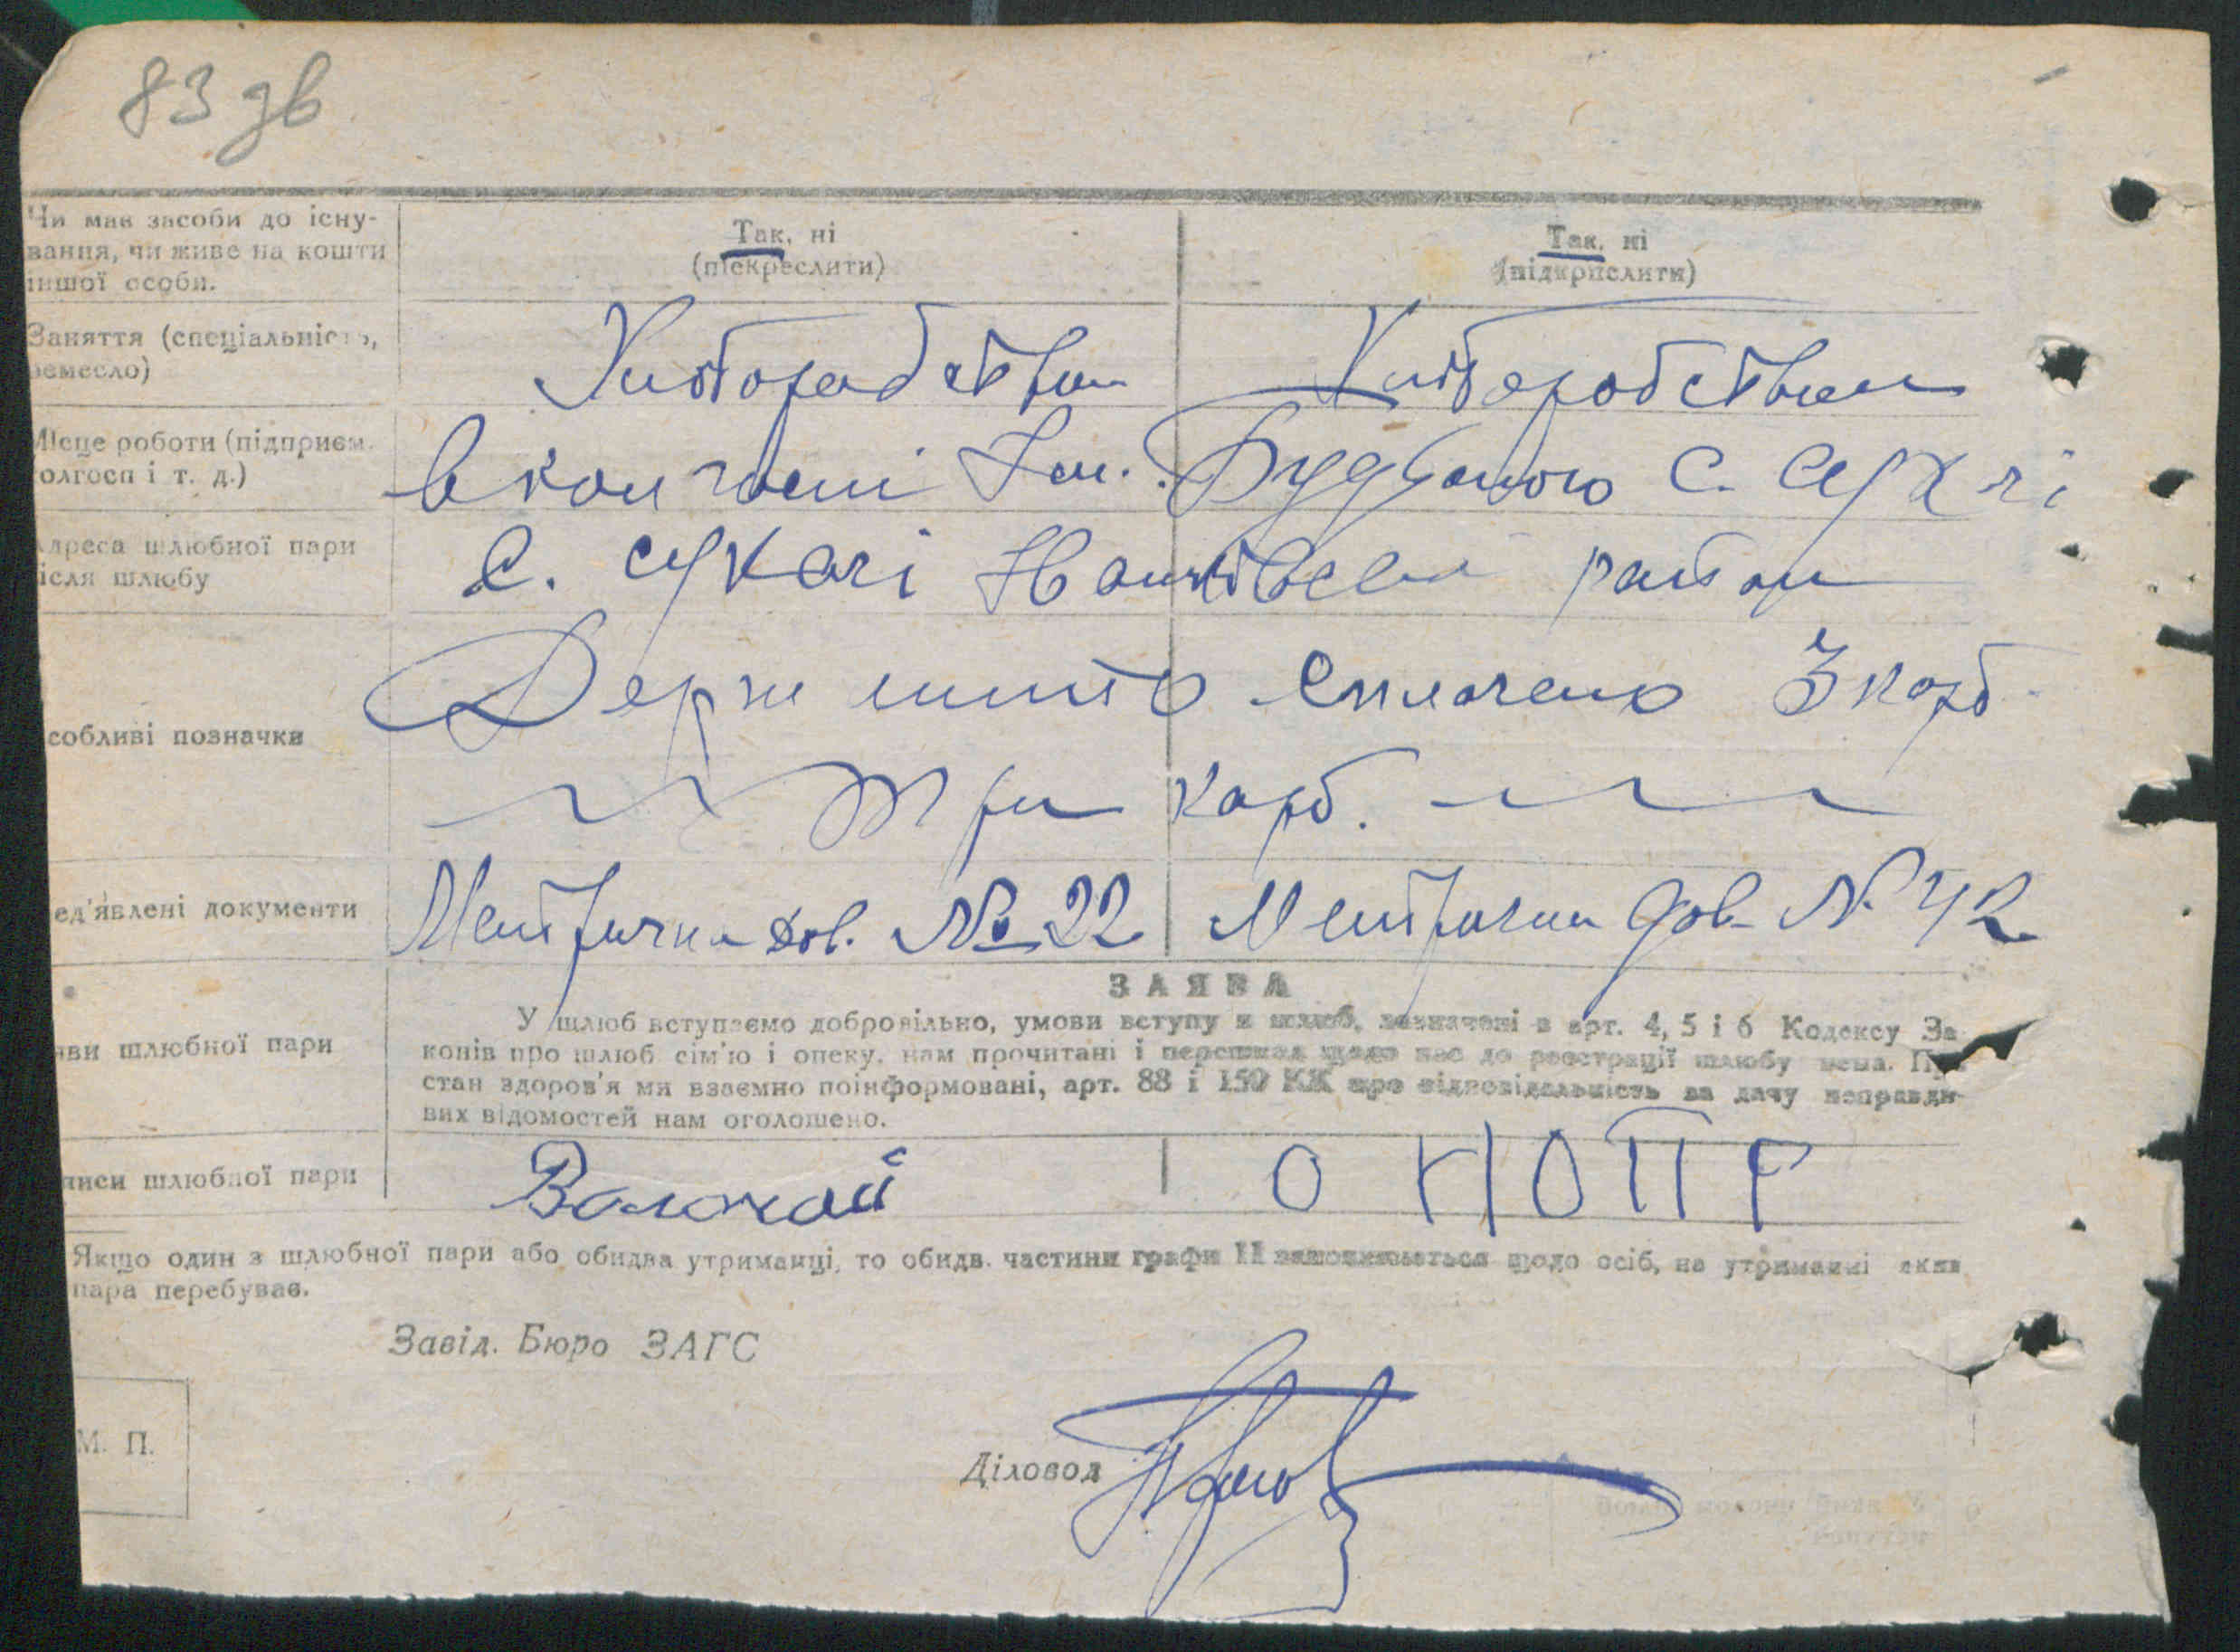 83 зв
Чи має засоби до існу-
вання, чи живе на кошти
іншої особи.
Так, ні
(підкреслити)
Так, ні
(підкрислити)
Заняття (спеціальність,
ремесло)
Хліборобство
Хліборобство
Місце роботи (підприєм.
олгосп і т. д.)
в колгоспі Ім. Будьоного С. Сукачі
дреса шлюбної пари
ісля шлюбу
С. Сукачі район
собливі позначки
Держ мито сплачено 3 карб.
три карб.
ед'явлені документи
Метрична дов. № 22
Метрична дов. № 42
ЗАЯВА
яви шлюбної пари
У шлюб вступаємо добровільно, умови вступу в шлюб, зазначені в арт. 4, 5 і 6 Кодексу За
конів про шлюб сім'ю і опеку, нам прочитані і перешкод щодо нас до реєстрації шлюбу нема. Про
стан здоров'я ми взаємно поінформовані, арт. 88 і 150 КК про відповідальність за дачу неправди-
вих відомостей нам оголошено.
писи шлюбної пари
О Н О П Р
Якщо один з шлюбної пари або обидва утриманці, то обидв. частини графи 11 заповнюється щодо осіб, на утриманні яких
пара перебуває.
Завід. Бюро ЗАГС
М. П.
Діловод